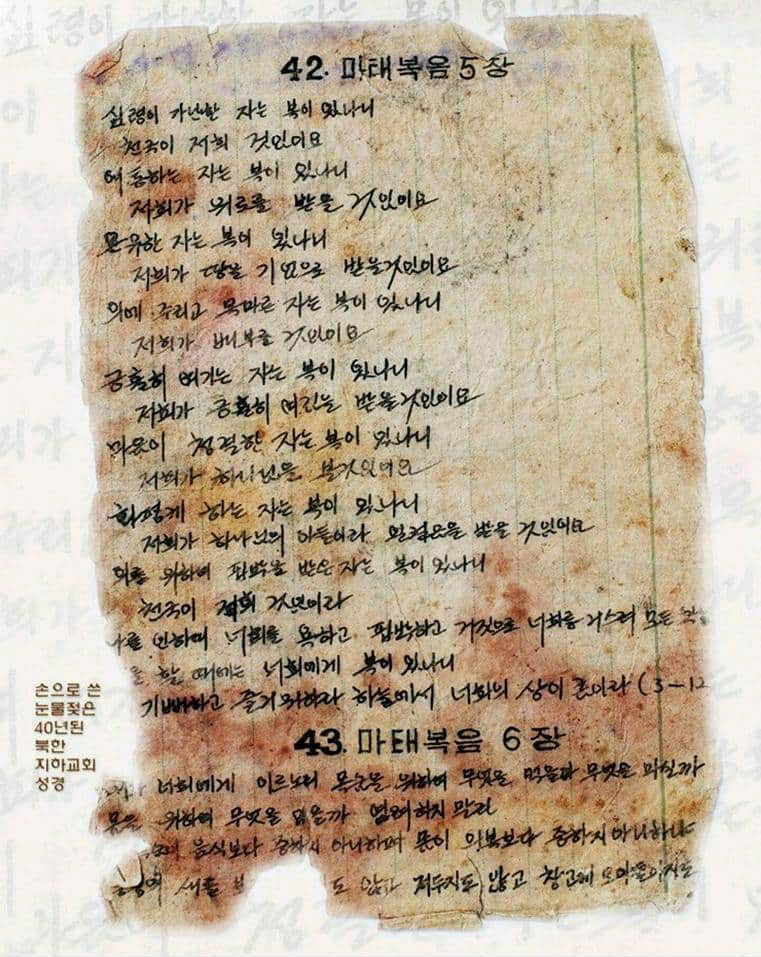 42. 마태복음 5장
심령이 가난한 자는 복이 있나니
천국이 저희 것임이요
애통하는 자는 복이 있나니
저희가 위로를 받을 것임이요
온유한 자는 복이 있나니
저희가 땅을 기업으로 받을것임이요
의에 주리고 목마른 자는 복이 있나니
저희가 배부를 것임이요
긍휼히 여기는 자는 복이 있나니
저희가 긍휼히 여김을 받을것임이요
마음이 청결한 자는 복이 있나니
저희가 하나님을 볼것임이요
화평케 하는 자는 복이 있나니
저희가 하나님의 아들이라 일컬음을 받을 것임이요
의를 위하여 핍박을 받은 자는 복이 있나니
천국이 저희 것임이라
나를 인하여 너희를 욕하고 핍박하고 거짓으로 너희를 거스려 모든
할 때에는 너희에게 복이 있나니
기뻐하고 즐거워하라 하늘에서 너희의 상이 큼이라 (3-12
43. 마태복음 6장
너희에게 이르노니 목숨을 위하여 무엇을 먹을까 무엇을 마실까
몸을 위하여 무엇을 입을까 염려하지 말라
음식보다 중하지 아니하며 몸이 의복보다 중하지 아니하냐
새를 도 않고 거두지도 않고 창고에 모아들이지도
손으로 쓴
눈물젖은
40년된
북한
지하교회
성경